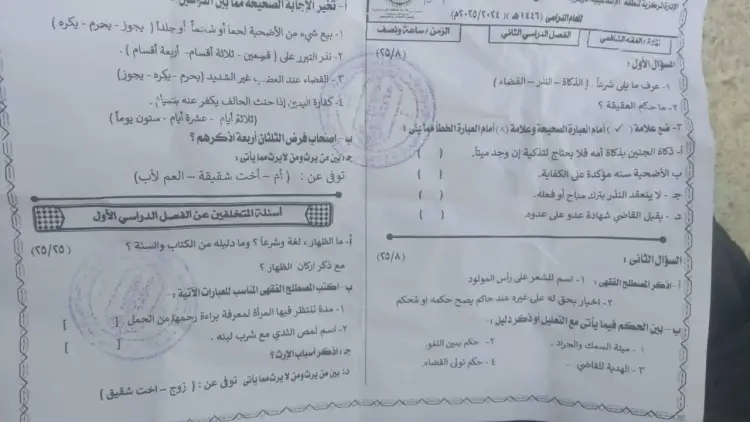 الإدارة المركزية
للعام الدراسى (١٤٤٦هـ / ٢٠٢٤/ ٢٠٢٥م)
مادة / الفقه الشافعي
الفصل الدراسى الثانى
الزمن / ساعة ونصف
السؤال الأول :
(٢٥/٨)
١- عرف ما يلى شرعاً . (الذكاة – النذر – القضاء )
٢- ما حكم العقيقة ؟
٣- ضع علامة ( ✓ ) أمام العبارة الصحيحة وعلامة (×) أمام العبارة الخطأ فيما يلى :
أ- ذكاة الجنين بذكاة أمه فلا يحتاج لتذكية إن وجد ميتاً. ( )
ب- الأضحية سنه مؤكدة على الكفاية. ( )
جـ - لا ينعقد النذر بترك مباح أو فعله. ( )
د- يقبل القاضي شهادة عدو على عدوه. ( )
السؤال الثانى :
(٢٥/٨)
أ- اذكر المصطلح الفقهى : ١- اسم للشعر على رأس المولود
٢- اخبار بحق له على غيره عند حاكم يصح حكمه أو مُحكم
ب- بين الحكم فيما يأتى مع التعليل أو ذكر دليل :
١- ميتة السمك والجراد . ٢- حكم يمين اللغو.
٣- الهدية للقاضي . ٤- حكم تولى القضاء.
أ- تخير الإجابة الصحيحة مما بين القوسين
١- بيع شيء من الأضحية لحماً أو شحماً أو جلداً ( يجوز – يحرم – يكره )
٢- نذر التبرر على ( قسمين – ثلاثة أقسام – أربعة أقسام) .
٣- القضاء عند الغضب غير الشديد (يحرم – يكره – يجوز)
٤- كفارة اليمين إذا حنث الحالف يكفر عنه
(ثلاثة أيام – عشرة أيام – ستون يوماً )
ب- أصحاب فرض الثلثان أربعة اذكرهم ؟
جـ- بين من يرث ومن لا يرث مما يأتى :
توفى عن : ( أم – أخت شقيقة – العم لأب)
أسئلة المتخلفين عن الفصل الدراسي الأول
أ- ما الظهار ، لغة وشرعاً ؟ وما دليله من الكتاب والسنة ؟
(٢٥/٢٥)
مع ذكر اركان الظهار ؟
ب- اكتب المصطلح الفقهى المناسب للعبارات الآتية :-
١- مدة تنتظر فيها المرأة لمعرفة براءة رحمها من الحمل [ ]
٢- اسم لمص الثدي مع شرب لبنه . [ ]
جـ: اذكر أسباب الإرث؟
د: بين من يرث ومن لا يرث مما يأتى توفى عن : ( زوج – اخت شقيق )